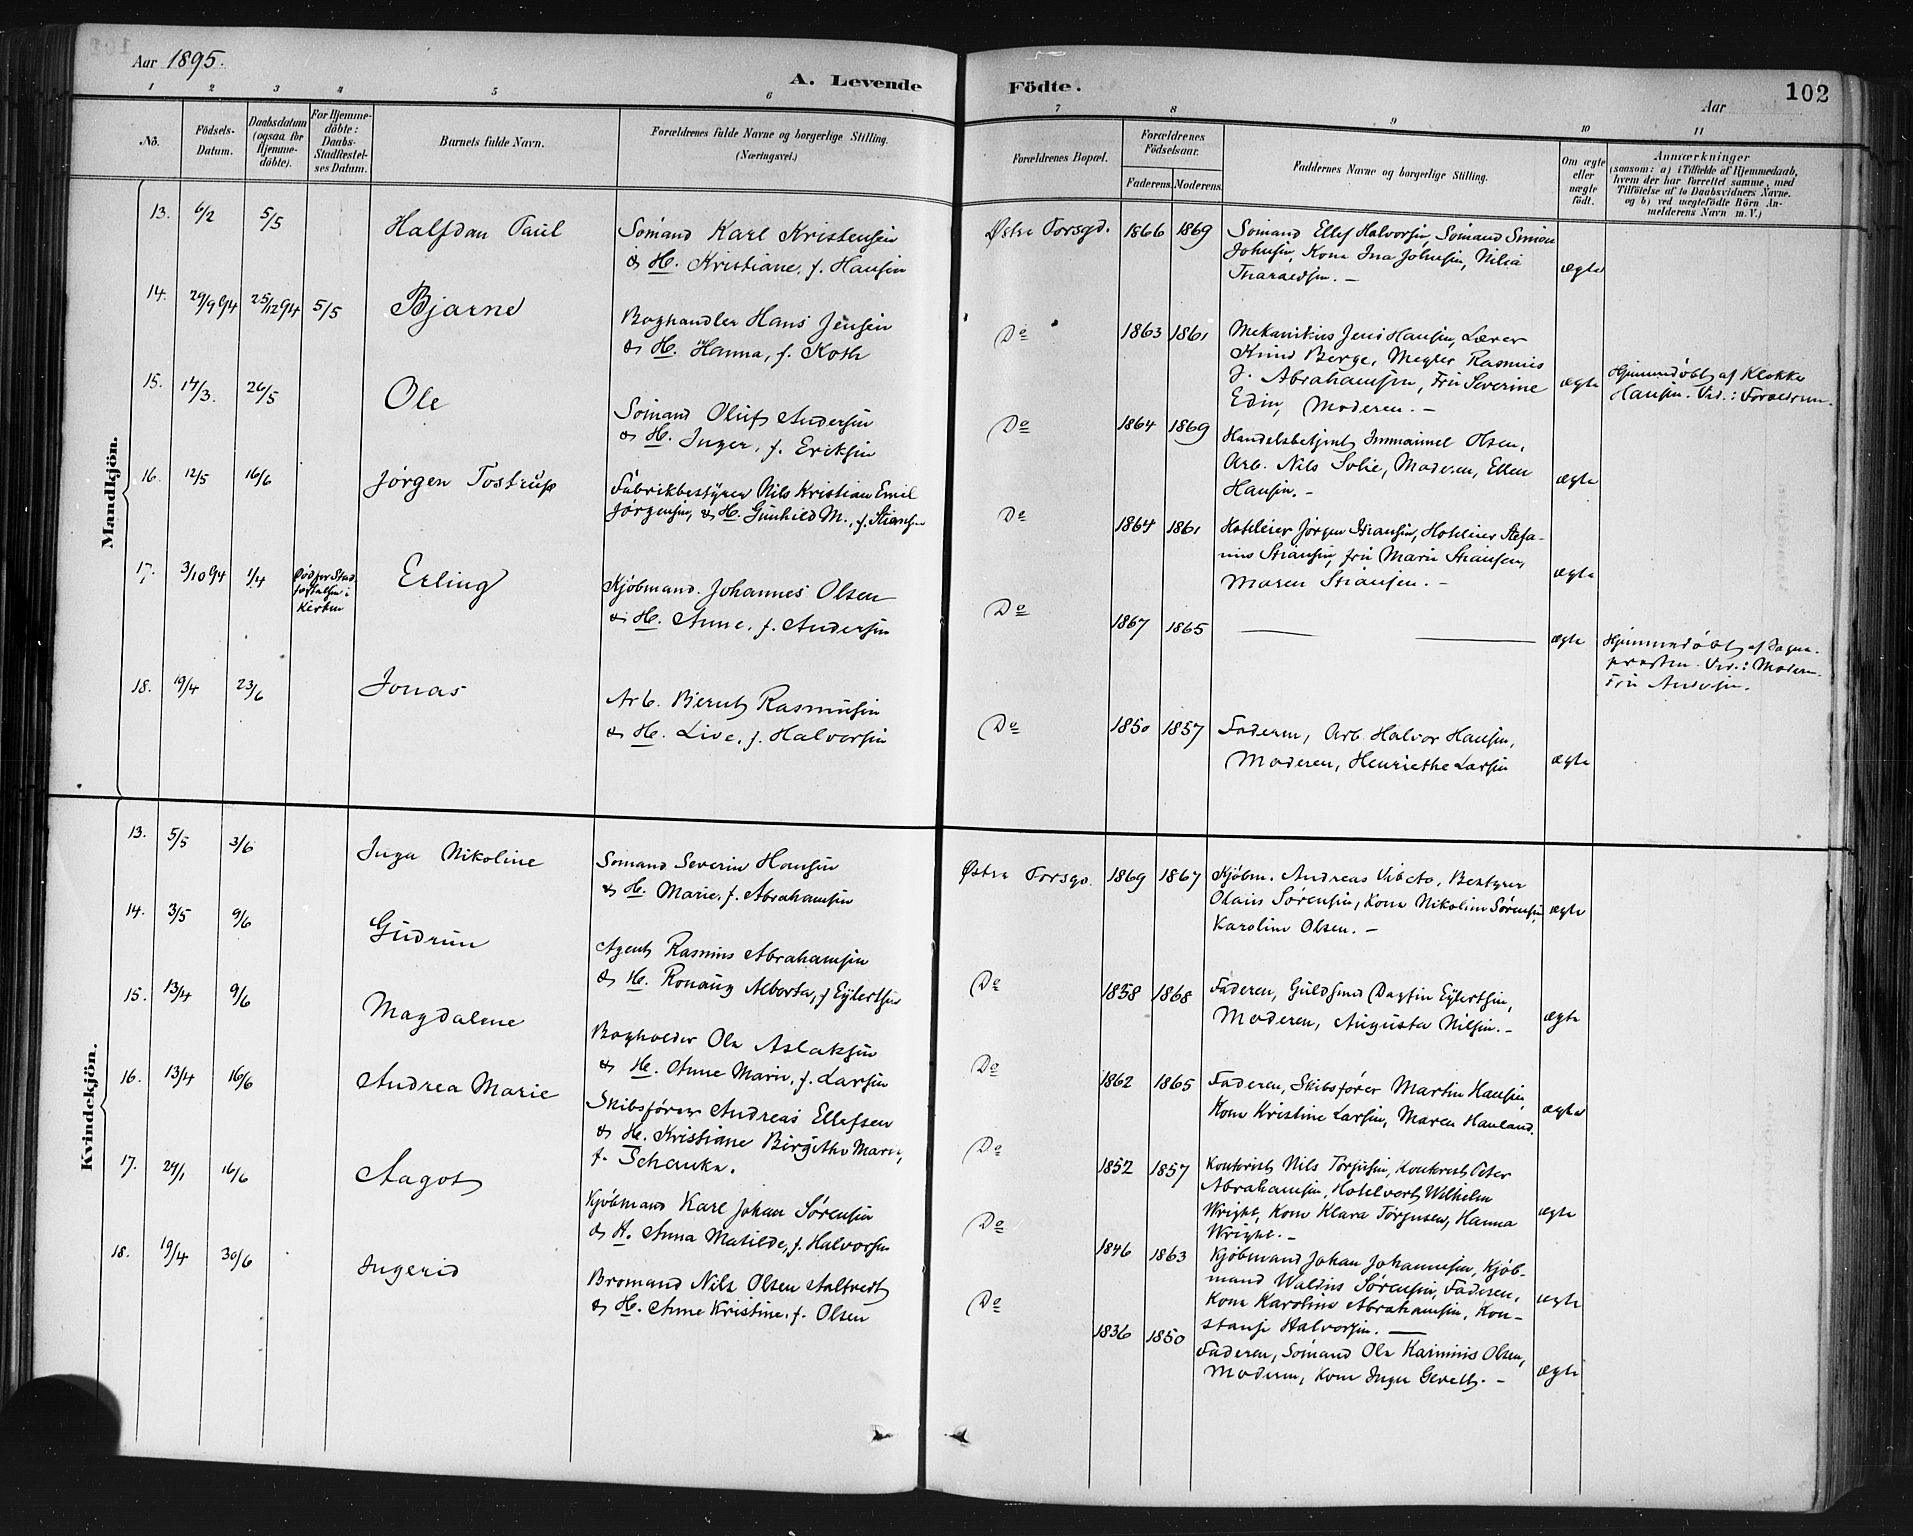 Aar 1895.
A. Levende
Födte.
Aar
102
1 2 3 4 5 6
7 8 9 10 11
No.
Födsels-
Datum.
Daabsdatum
(ogsaa for
Hjemme-
döbte).
For Hjemme-
döbte:
Daabs-
Stadfæstel-
ses Datum.
Barnets fulde Navn.
Forældrenes fulde Navne og borgerlige Stilling.
(Næringsvei.)
Forældrenes Bopæl.
Forældrenes
Födselsaar.
Faderens. Moderens.
Faddernes Navne og borgerlige Stilling.
Om ægte
eller
uægte
födt.
Anmærkninger
(saasom: a) i Tilfælde af Hjemmedaab,
hvem der har forrettet samme, med
Tilföielse af to Daabsvidners Navne.
og b) ved uægtefödte Börn An-
melderens Navn m. V.)
Mandkjön.
13. 6/2 5/5 Halfdan Paul
Sømand Karl Kristensen
& H. Kristiane, f. Hansen
Østre Porsgd. 1866 1869
Sømand Ellef Halvorsen, Sømand Simon
Johnsen, Kone Ina Johnsen, Nilia
Tharaldsen. –
ægte
14. 29/9 94 25/12 94 5/5 Bjarne
Boghandler Hans Jensen
& H. Hanna, f. Koth
Do 1863 1861
Mekanikus Jens Hansen, Lærer
Knud Berge, Megler Rasmus
J. Abrahamsen, Fru Severine
Edin, Moderen. –
ægte
Hjemmedøbt af Klokker
Hansen. Vid.: Forældrene.
15. 14/3. 26/5 Ole
Sømand Oluf Andersen
& H. Inger, f. Eriksen
Do 1864 1869
Handelsbetjent Immanuel Olsen,
Arb. Nils Solie, Moderen, Ellen
Hansen. –
ægte
16. 12/5 16/6 Jørgen Tostrup
Fabrikbestyrer Nils Kristian Emil
Jørgensen, & H. Gunhild M., f. Stiansen
Do 1864 1861
Hoteleier Jørgen Stiansen, Hoteleier Stefa-
nus Stiansen, fru Marie Stiansen,
Maren Stiansen. –
ægte
17. 3/10 94 1/4 Død før Stad-
fæstelsen i
Kirken
Erling
Kjøbmand. Johannes Olsen
& H. Anne, f. Andersen
Do 1867 1865
ægte
Hjemmedøbt af Sogne-
præsten. Vid.: Moderen.
Fru Andersen.
18. 19/4 23/6 Jonas
Arb. Bjerut Rasmusen
& H. Live, f. Halvorsen
Do 1850 1857
Faderen, Arb. Halvor Hansen,
Moderen, Henriethe Larsen
ægte
Kvindekjön.
13. 5/5 3/6 Inga Nikoline
Sømand Severin Hansen
& H. Marie, f. Abrahamsen
Østre Porsgd. 1869 1867
Kjøbm. Andreas Vibeto, Bestyrer
Olaus Sørensen, Kone Nikoline Sørensen
Karoline Olsen. –
ægte
14. 3/5 9/6 Gudrun
Agent Rasmus Abrahamsen
& H. Ronaug Alberta, f. Eylertsen
Do 1858 1868
Faderen, Guldsmd Dagfin Eylertsen,
Moderen, Augusta Nilsen. –
ægte
15. 13/4 9/6 Magdalene
Bogholder Ole Aslaksen
& H. Anne Marie, f. Larsen
Do 1862 1865
Faderen, Skibsfører Martin Hansen,
Kone Kristine Larsen, Maren Hauland.
ægte
16. 13/4 16/6 Andrea Marie
Skibsfører Andreas Ellefsen
& H. Kristiane Birgithe Marie,
f. Schanke.
Do 1852 1857
Kontorist Nils Torjusen, Kontorist Peter
Abrahamsen, Hotelvert Wilhelm
Wright, Kone Klara Torjusen, Hanna
Wright. –
ægte
17. 24/1 16/6 Aagot
Kjøbmand Karl Johan Sørensen
& H. Anna Matilde, f. Halvorsen
Do 1846 1863
Kjøbmand Johan Johannesen, Kjøb-
mand Waldus Sørensen, Faderen,
Kone Karoline Abrahamsen, Kon-
stanse Halvorsen. –
ægte
18. 19/4 30/6 Ingerid
Bromand Nils Olsen Aaltvedt
& H. Anne Kristine, f. Olsen
Do 1836 1850
Faderen, Sømand Ole Karinius Olsen,
Moderen, Kone Inger
ægte